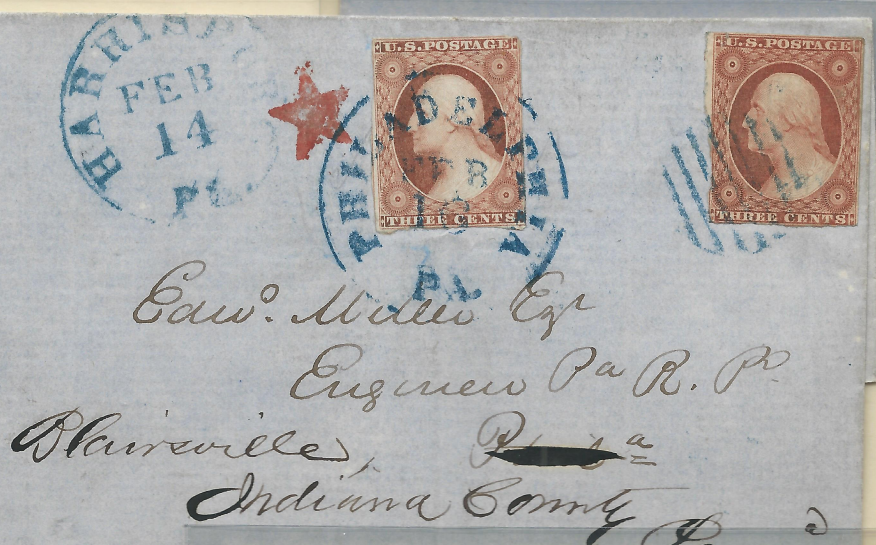 HARRISB
FEB
14
Pa.
U.S. POSTAGE
THREE CENTS
PHILADELPHIA
FEB
18
PA.
U.S. POSTAGE
THREE CENTS
Edwd. Miller Esqr
Engineer Pa R. R.
Blairsville,
Indiana County